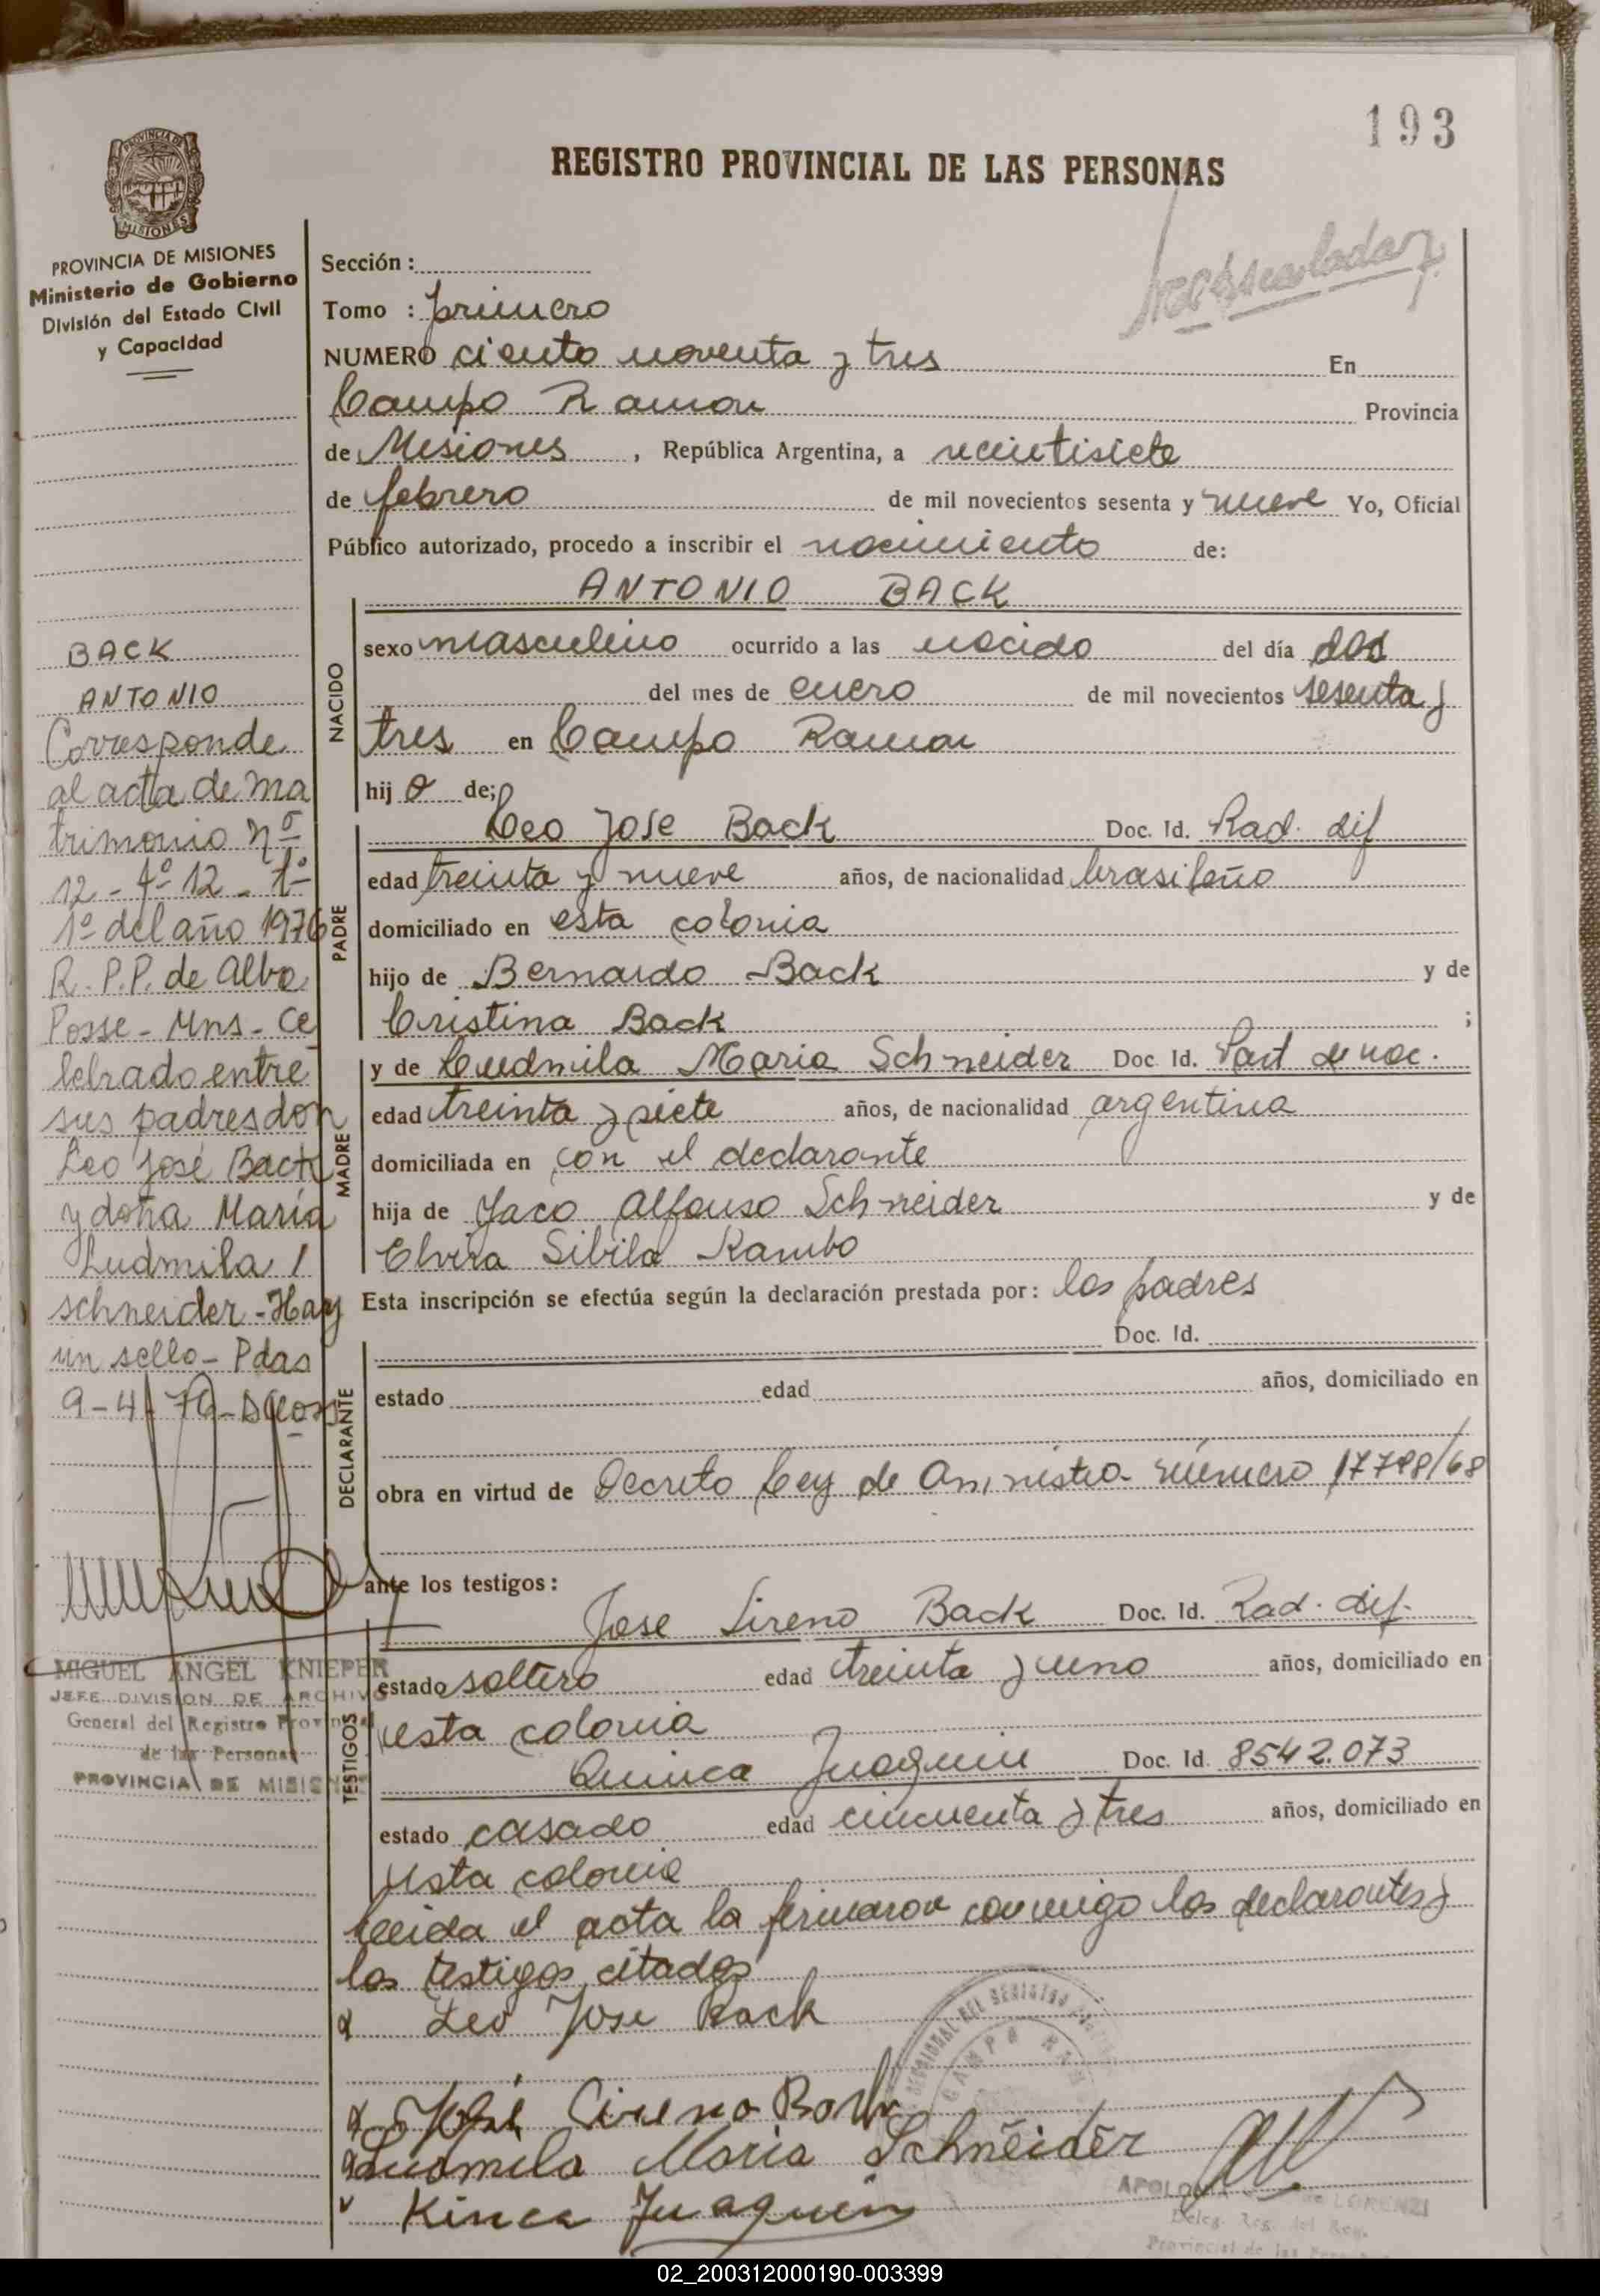 193
REGISTRO PROVINCIAL DE LAS PERSONAS
PROVINCIA DE MISIONES
Ministerio de Gobierno
División del Estado Civil
y Capacidad
Sección :
Tomo : primero
NUMERO ciento noventa y tres En
Campo Ramon Provincia
de Misiones , República Argentina, a veintisiete
de febrero de mil novecientos sesenta y nueve Yo, Oficial
Público autorizado, procedo a inscribir el nacimiento de:
ANTONIO BACK
NACIDO
sexo masculino ocurrido a las nacido del día dos
del mes de enero de mil novecientos sesenta y
tres en Campo Ramon
hij o de;
PADRE
Leo Jose Back Doc. Id. Rad. dif
edad treinta y nueve años, de nacionalidad brasileño
domiciliado en esta colonia
hijo de Bernardo Back y de
Cristina Back ;
MADRE
y de Ludmila Maria Schneider Doc. Id. Part de nac.
edad treinta y siete años, de nacionalidad argentina
domiciliada en con el declarante
hija de Jaco Alfonso Schneider y de
Elvira Sibila Kambo
Esta inscripción se efectúa según la declaración prestada por: los padres
DECLARANTE
Doc. Id.
estado edad años, domiciliado en
obra en virtud de Decreto Ley de Amnistia número 17798/68
ante los testigos:
TESTIGOS
Jose Sireno Back Doc. Id. Rad. dif.
estado soltero edad treinta y uno años, domiciliado en
esta colonia
Quinca Juaquin Doc. Id. 8542.073
estado casado edad cincuenta y tres años, domiciliado en
esta colonia
Leida el acta la firmaron conmigo los declarantes y
los testigos citados
Leo Jose Back
José Cireno Back
Ludmila Maria Schneider
Kinca Juaquin
BACK
ANTONIO
Corresponde
al acta de ma
trimonio Nº
12 - Fº 12 - Tº
1º del año 1976
R. P.P. de Alba
Posse - Mns - Ce
lebrado entre
sus padres don
Leo José Back
y doña María
Ludmila /
Schneider - Hay
un sello - Pdas
9-4-76
MIGUEL ANGEL KNIEPER
JEFE DIVISION DE ARCHIVO
General del Registro Provincial
de las Personas
PROVINCIA DE MISIONES
CAMPO RAMON
LORENZI
Deleg. Reg. del Reg.
Provincial de las
02_200312000190-003399